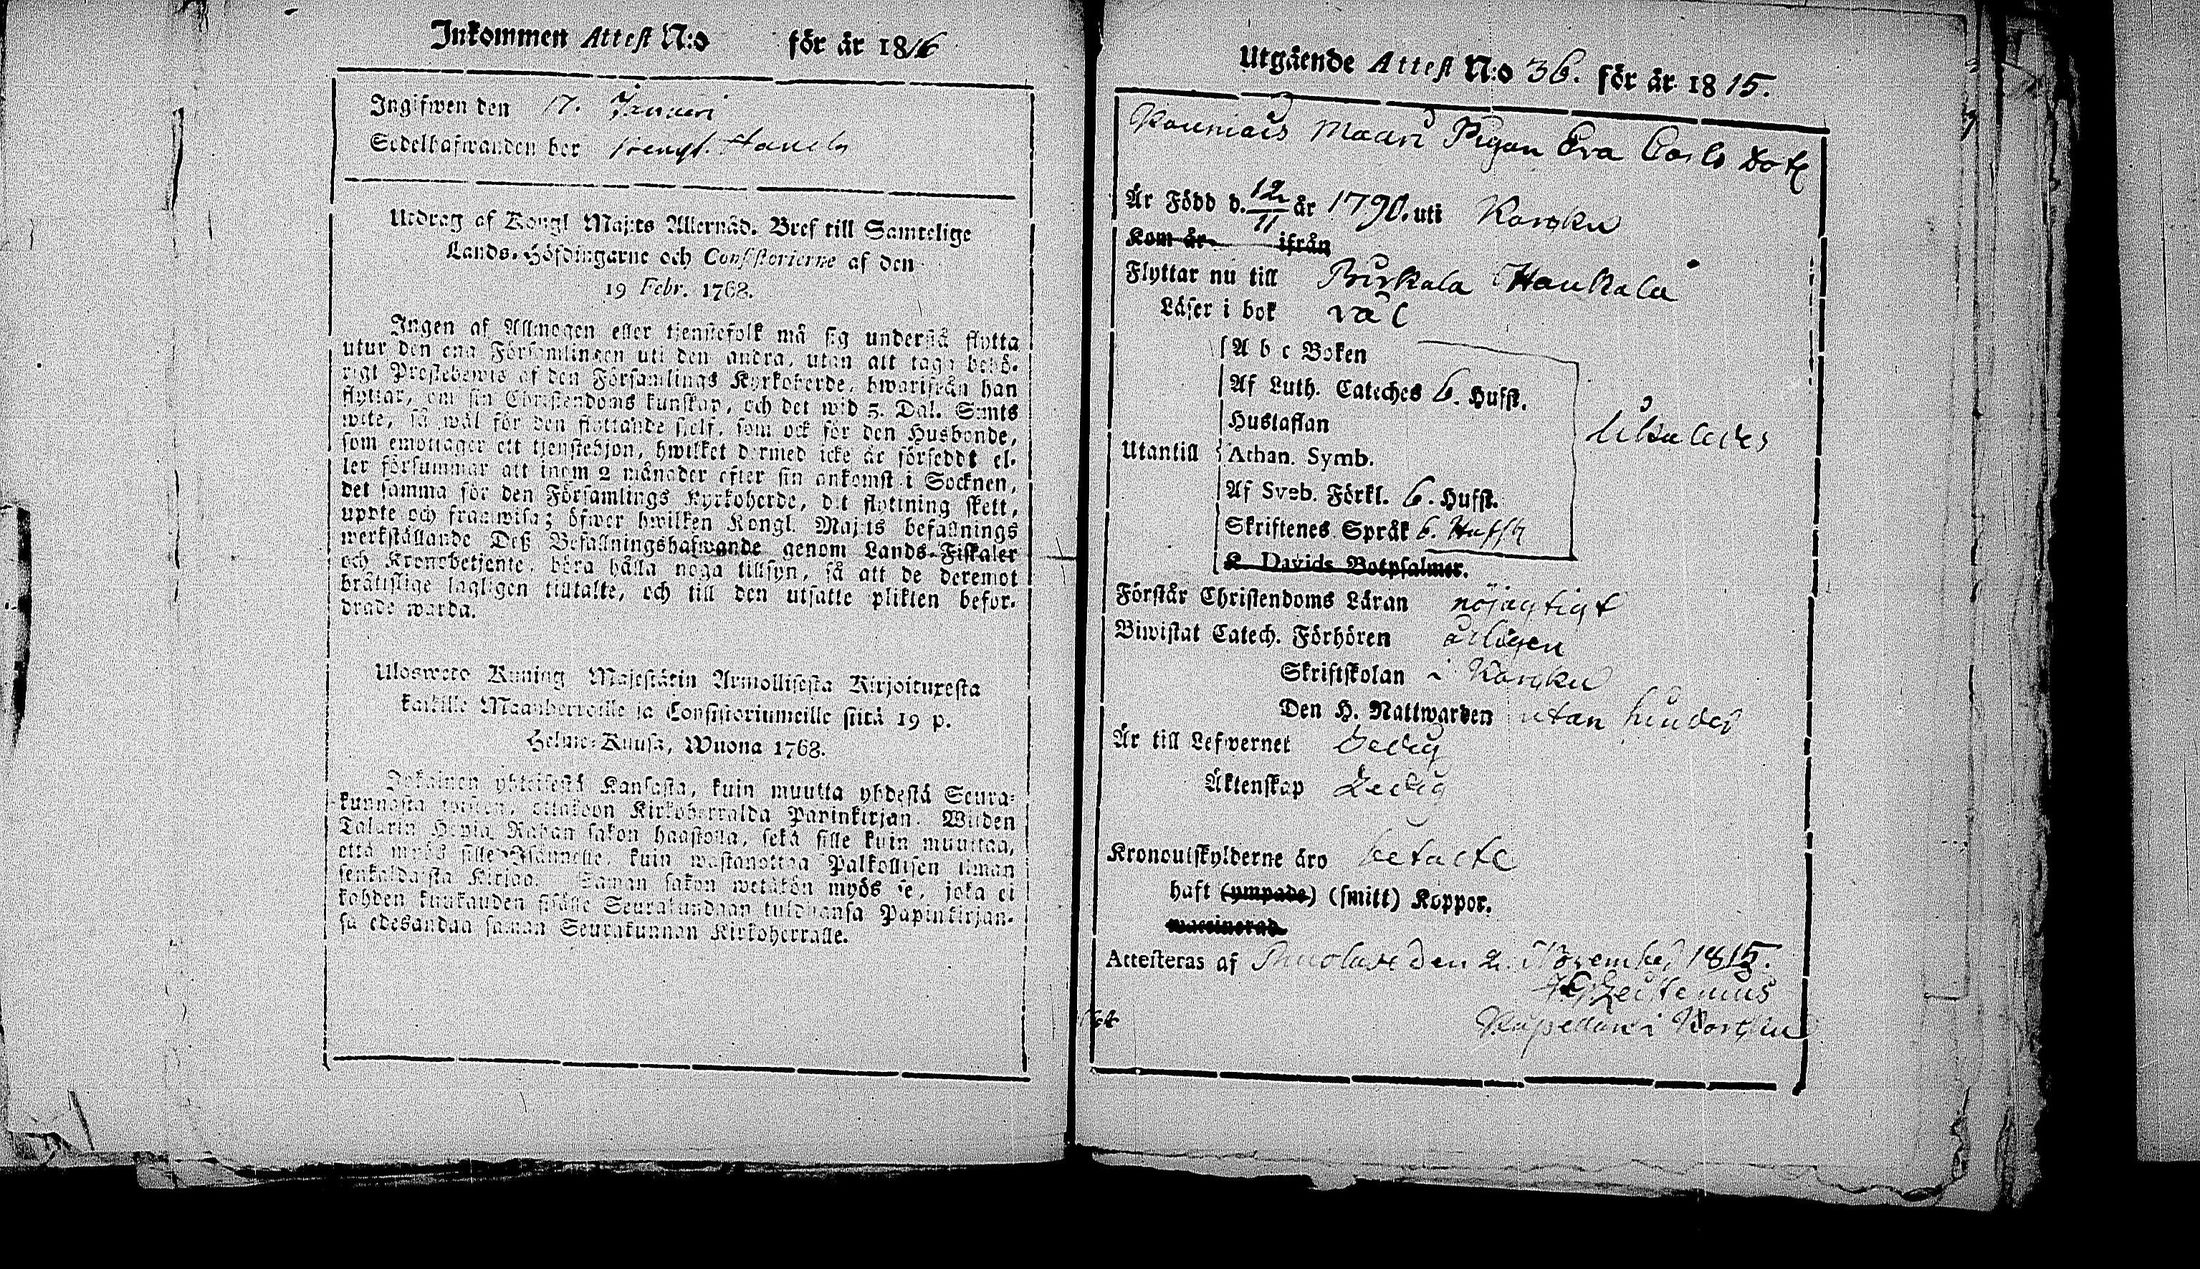 Inkommen Attest N:o för år 1816
Ingifwen den 17. Januari
Sedelhafwanden bor
Utdrag af Kongl Maj:ts Allernåd. Bref till Samtelige
Lands-Höfdingarne och Consistorierne af den
19 Febr. 1768.
Ingen af Allmogen eller tjenstefolk må sig understå flytta
utur den ena Församlingen uti den andra, utan att taga behö-
rigt Prestebewis af den Församlings Kyrkoherde, hwarifrån han
flyttar, om sin Christendoms kunskap, och det wid 5. Dal. S:mts
wite, så wäl för den flyttande sielf, som ock för den Husbonde,
som emottager ett tjenstehjon, hwilket dermed icke är förseddt el-
ler försummar att inom 2 månader efter sin ankomst i Socknen,
det samma för den Församlings Kyrkoherde, dit flyttning skett,
uppte och framwisa; öfwer hwilken Kongl. Maj:ts befallnings
werkställande Deß Befallningshafwande genom Lands-Fiskaler
och Kronobetjente, böra hålla noga tillsyn, så att de deremot
bråttslige lagligen tiltalte, och till den utsatte plikten befor-
drade warda.
Uloswetо Kuning Majestätin Armollisesta Kirjoituxesta
kaikille Maanherroille ja Consistoriumeille siitä 19 p.
Helme-Kuusa, Wuona 1768.
Jokainen yhteisestä Kansasta, kuin muutta yhdestä Seura-
kunnasta toiseen, ottakoon Kirkoherralda Papinkirjan. Wiiden
Talarin Hopia Rahan sakon haastolla, sekä sille kuin muuttaa,
että myös sille Isännelle, kuin wastanottaa Palkollisen ilman
senkaldaista Kirjaa. Saman sakon wetäkön myös se, joka ei
kahden kuukauden sisälle Seurakundaan tulduansa Papinkirjan-
sa edesandaa saman Seurakunnan Kirkoherralle.
Utgående Attest N:o 36. för år 1815.
Maari Pigan Eva Carls Dotr
Är Född d. 12/11 år 1790. uti Karcku
Kom år ifrån
Flyttar nu till Birkala Haukala
Läser i bok väl
A b c Boken
Af Luth. Cateches 6. Hufst.
Hustaflan
Utantill Athan. Symb.
Af Sveb. Förkl. 6. Hufst.
Skriftenes Språk 6. Hufst
K. Davids Botpsalmer.
Förstår Christendoms Läran nöjagtigt
Biwistat Catech. Förhören årligen
Skriftskolan i Karcku
Den H. Nattwarden utan hinder
Är till Lefwernet Ledig
Äktenskap Ledig
Kronoutskylderne äro betalte
haft (ympade) (smitt) Koppor.
waccinerad
Attesteras af den 2. November 1815.
Kapellan i Karcku